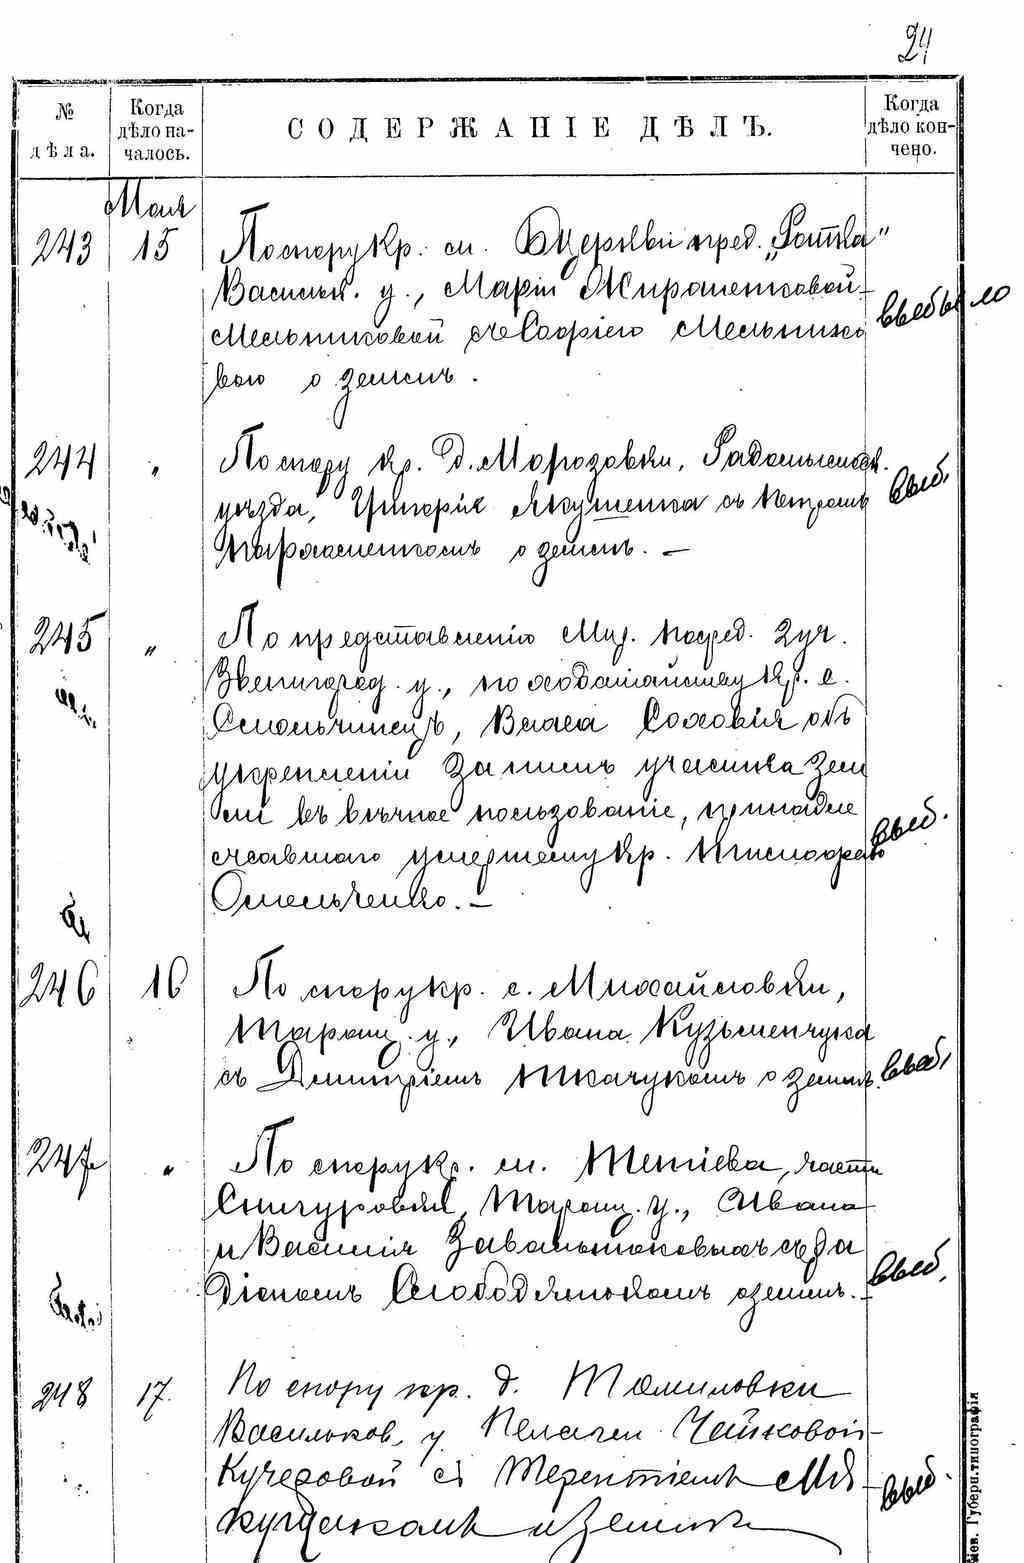 24
№ дѣла.
Когда дѣло началось.
СОДЕРЖАНІЕ ДѢЛЪ.
Когда дѣло кончено.
Мая
243 15 По спору кр. м. Б. Церкви пред. „Ротка"
Васильк. у., Маріи
Мельниковой съ Мельнико
вою о землѣ.
выбыло
244 „ По спору кр. д. Морозовки, Радомысльск.
уѣзда, Григорія Якушенка съ Петромъ
Пархоменкомъ о землѣ. —
выб.
245 „ По представленію Мир. Посред. 2 уч.
Звенигород. у., по ходатайству кр. с.
Смольчинецъ, Власа Соловія объ
укрепленіи за нимъ участка зем
ли въ вѣчное пользованіе, принадле
жавшаго умершему кр. Никифору
Омельченко. —
выб.
246 16 По спору кр. с. Михайловки,
Таращ. у., Ивана Кузьменчука
съ Дмитріемъ Ткачукомъ о землѣ.
выб.
247 „ По спору кр. м. Тетіева, части
Снигуровки, Таращ. у., Ивана
и Василія Завальнюковыхъ съ Ра
діономъ Слободянюкомъ о землѣ. —
выб.
248 17. По спору кр. д. Томиловки
Васильков. у. Пелагеи Чайковой-
Кучеровой съ Терентіемъ
о землѣ
выб.
Кіев. Губерн. типографія